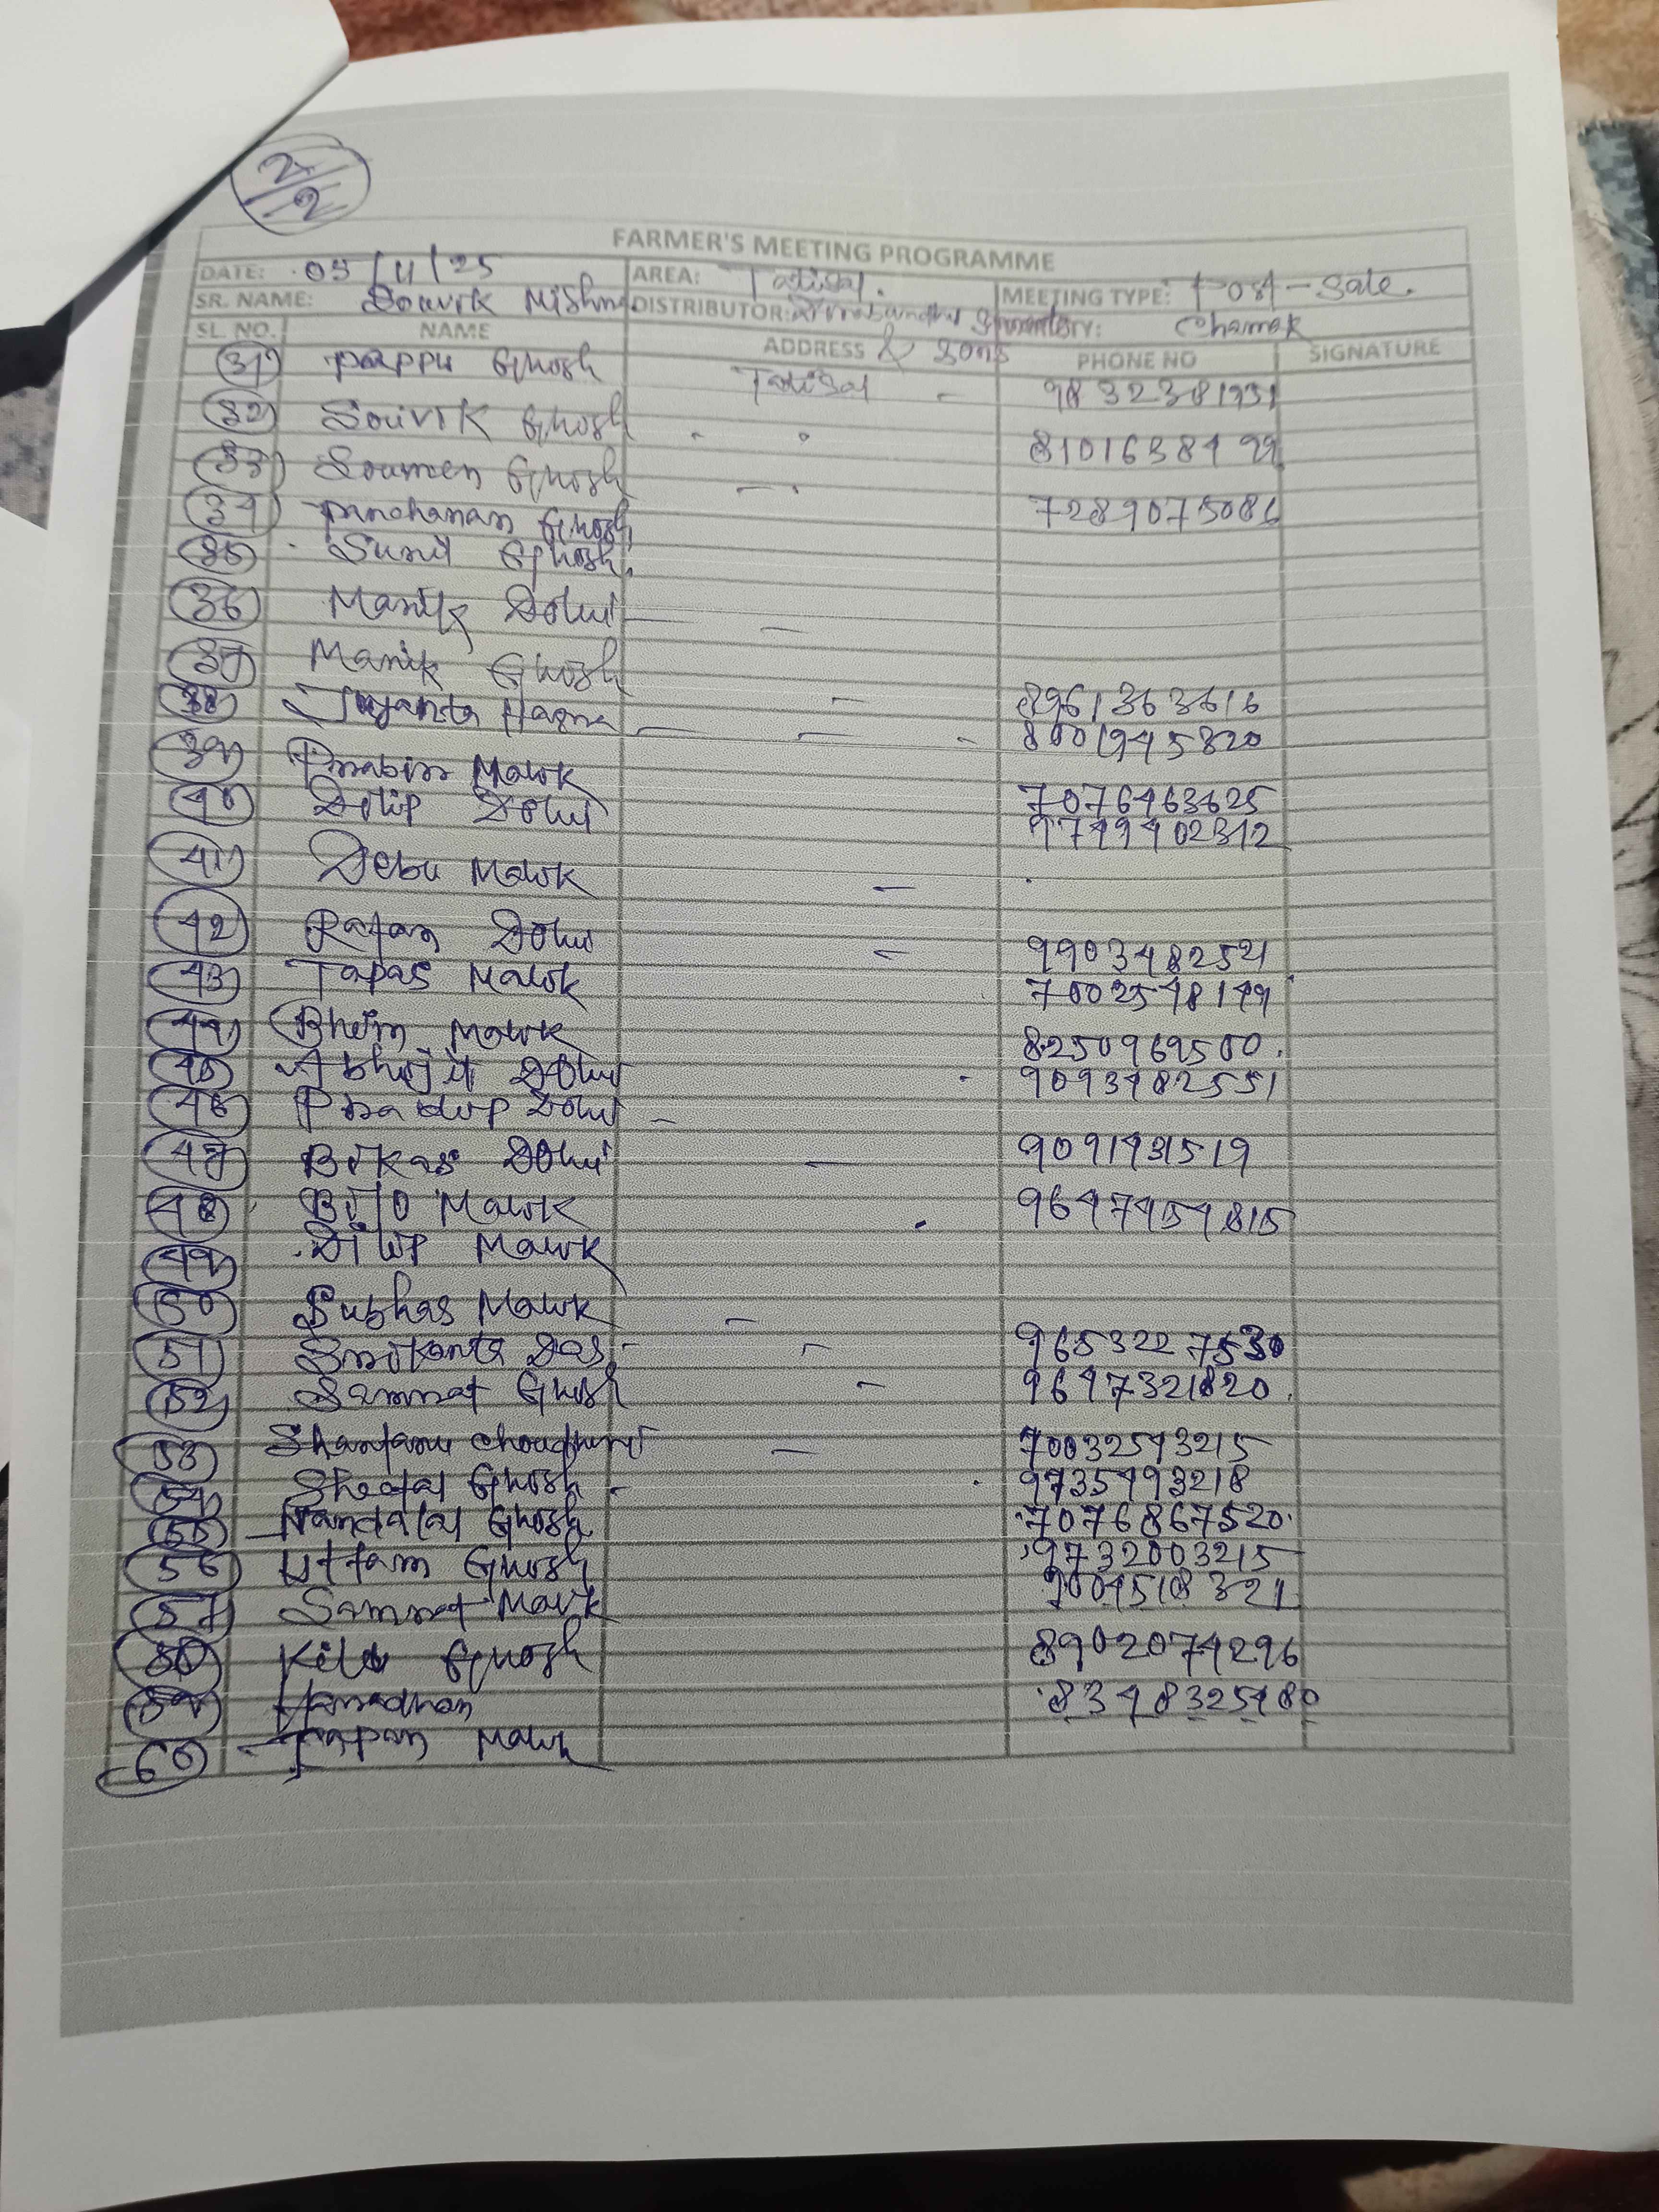 2/2
FARMER'S MEETING PROGRAMME
DATE: 05/11/25 AREA: Tatisal. MEETING TYPE: Post-Sale.
SR. NAME: Souvik Mishra DISTRIBUTOR: Dinabandhu & Sons Chamak
SL. NO. NAME ADDRESS PHONE NO SIGNATURE
31) Pappu Ghosh Tatisal - 9832381931
32) Souvik Ghosh 8101638499
33) Soumen Ghosh 7289075086
34) Panchanan Ghosh
35) Sunil Ghosh
36) Manik Dolui
37) Manik Ghosh 8961363616
38) Jayanta Hazra 8001945820
39) Prabir Malik 7076463625
40) Dilip Dolui 9749402312
41) Debu Malik
42) Ratan Dolui 9903482521
43) Tapas Malik 7002548149
44) Bhim Malik 8250969500.
45) Abhijit Dolui 9093482551
46) Pradip Dolui
47) Bikas Dolui 9091431519
48) Bijo Malik 9647454815
49) Dilip Malik
50) Subhas Malik
51) Srikanta Das 9653227530
52) Samrat Ghosh 9647321820.
53) Shantanu Choudhuri 70032543215
54) Ghosh 9735493218
55) Nandalal Ghosh 7076867520
56) Uttam Ghosh 9732003215
57) Samrat Malik 9004518321
58) Ghosh 8902074296
59) Haradhan 8348325480
60) Tapan Malik